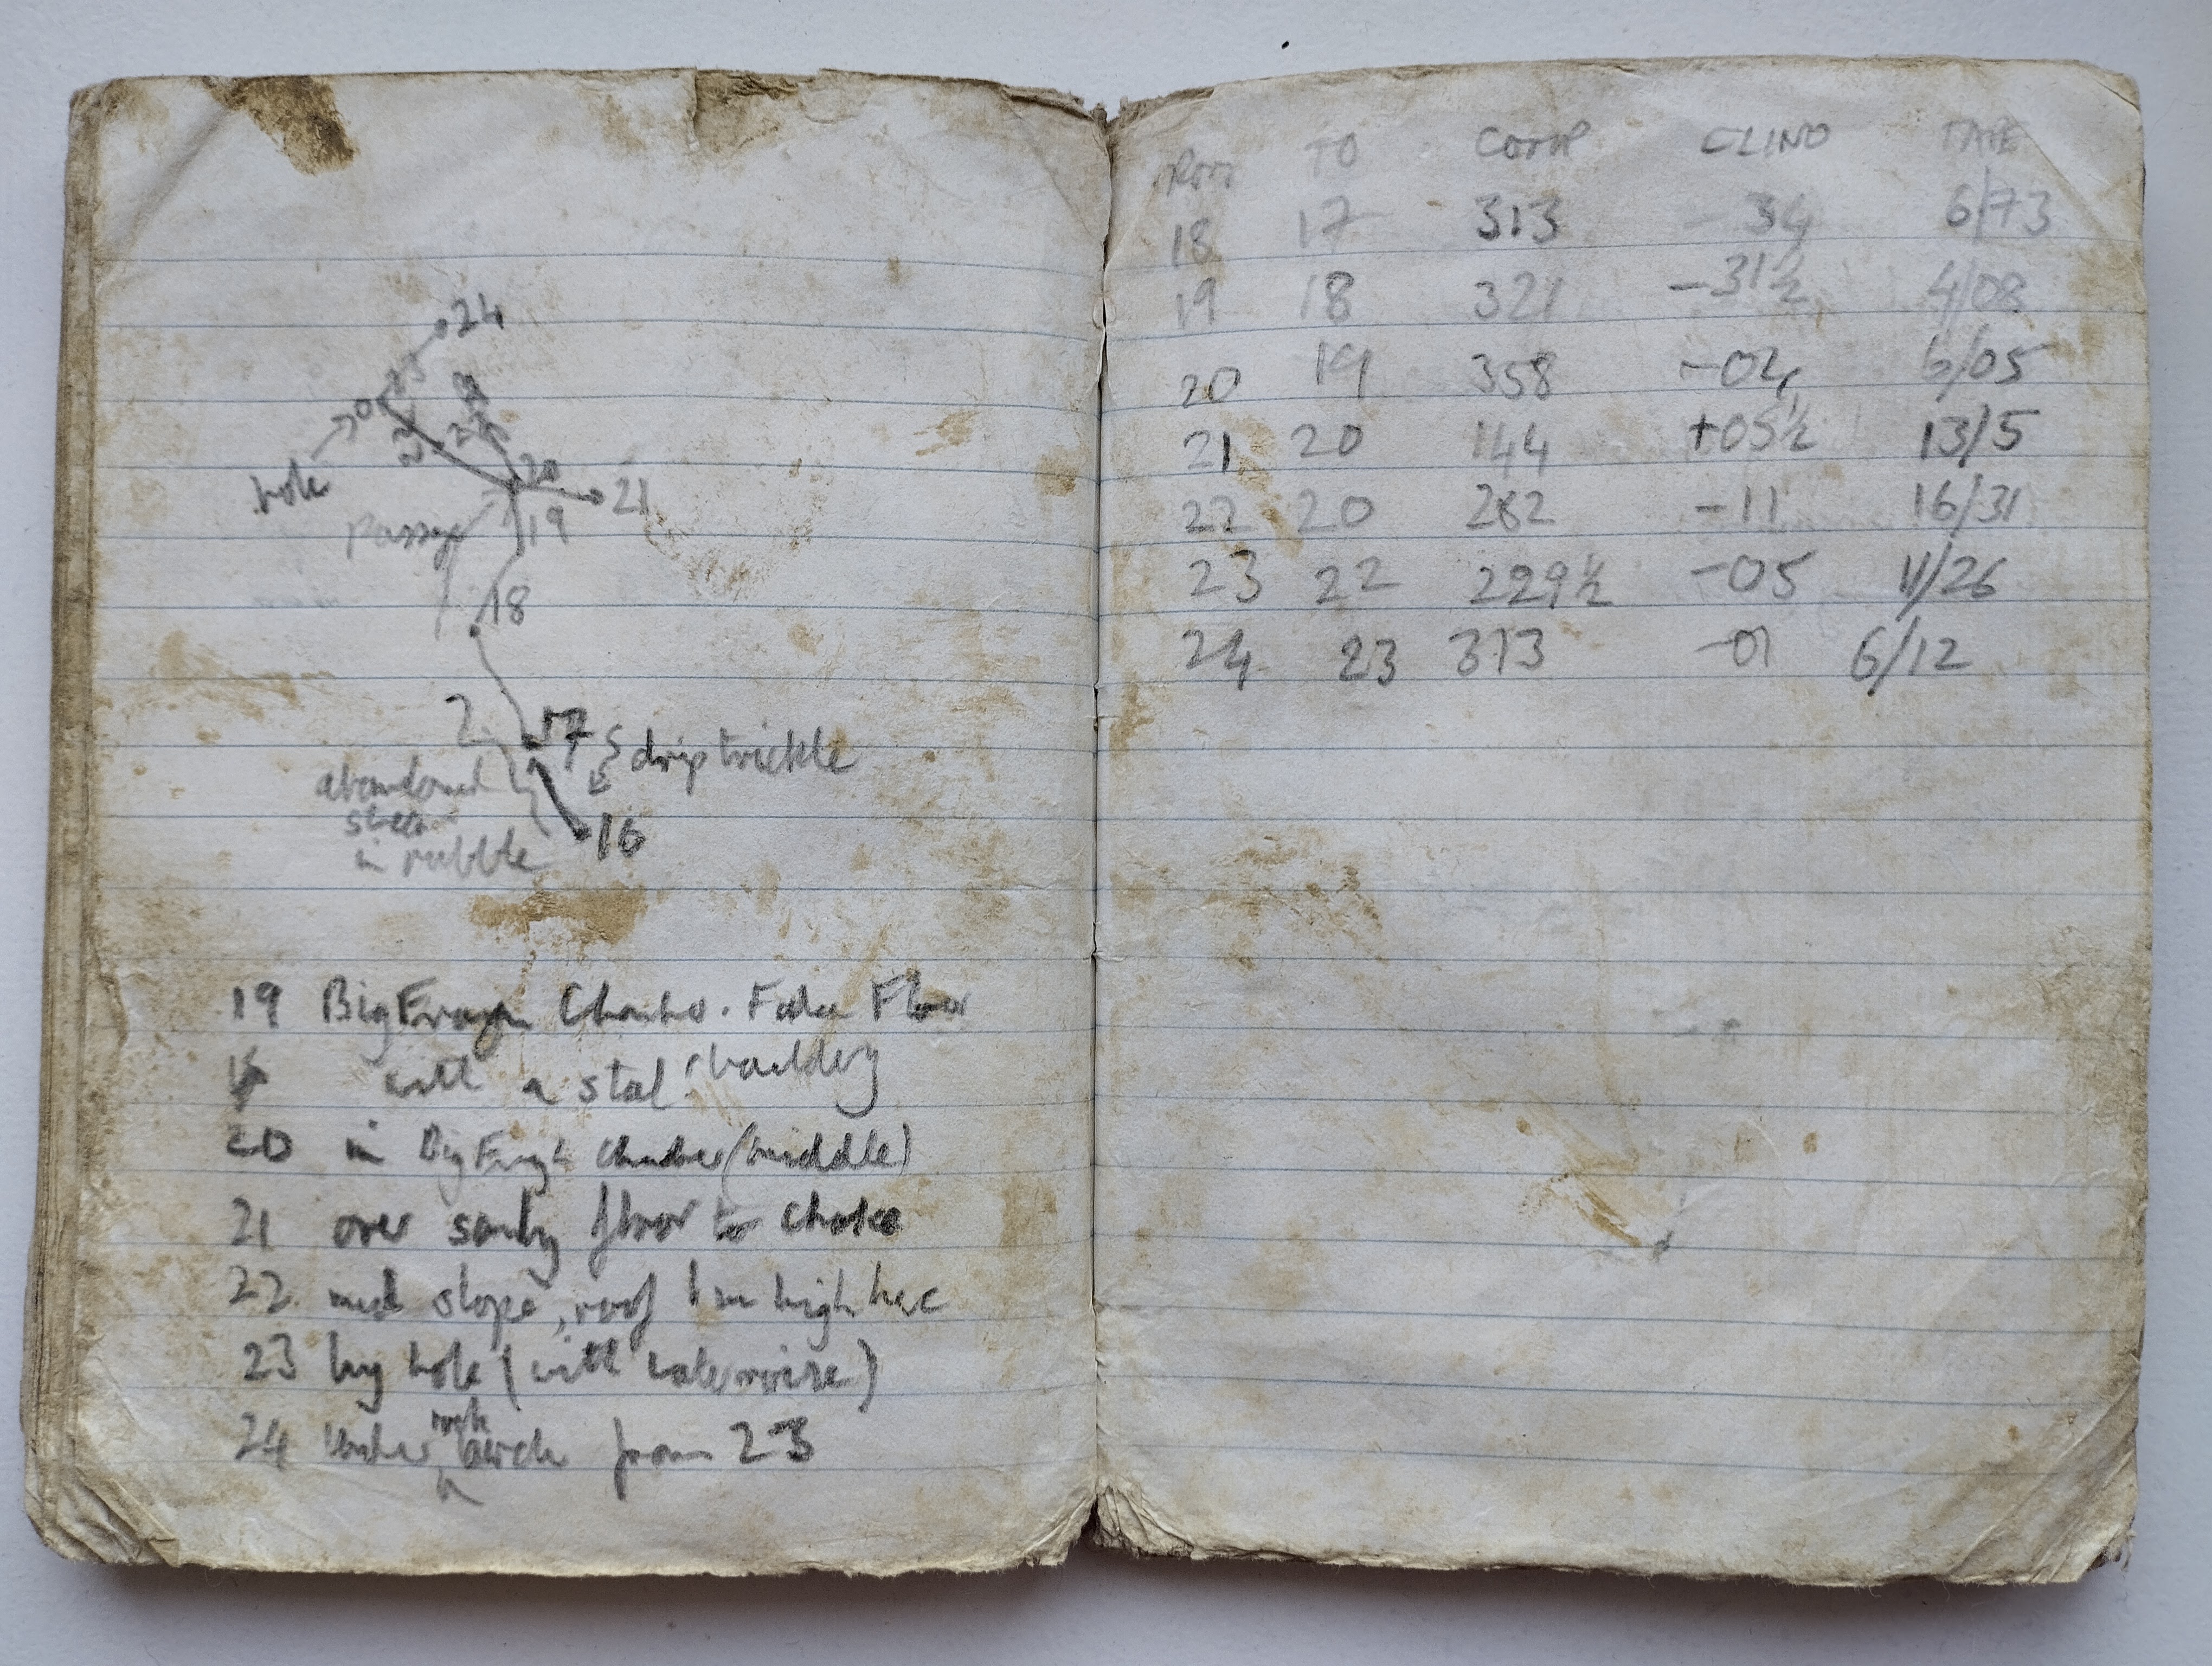 24
23
22
hole
20
21
Passage
19
18
?
17
drip trickle
abandoned
stream
in rubble
16
19 Big Chamber. False Floor
with a stal boulder
20 in Big Chamber (middle)
21 over sandy floor to choke
22 mud slope, roof 1m high here
23 by hole (with water noise)
24 Under rock arch from 23
From TO COMP CLINO TAPE
18 17 313 -34 6/73
19 18 321 -31½ 4/08
20 19 358 -02 6/05
21 20 144 +05½ 13/5
22 20 282 -11 16/31
23 22 229½ -05 11/26
24 23 313 -01 6/12